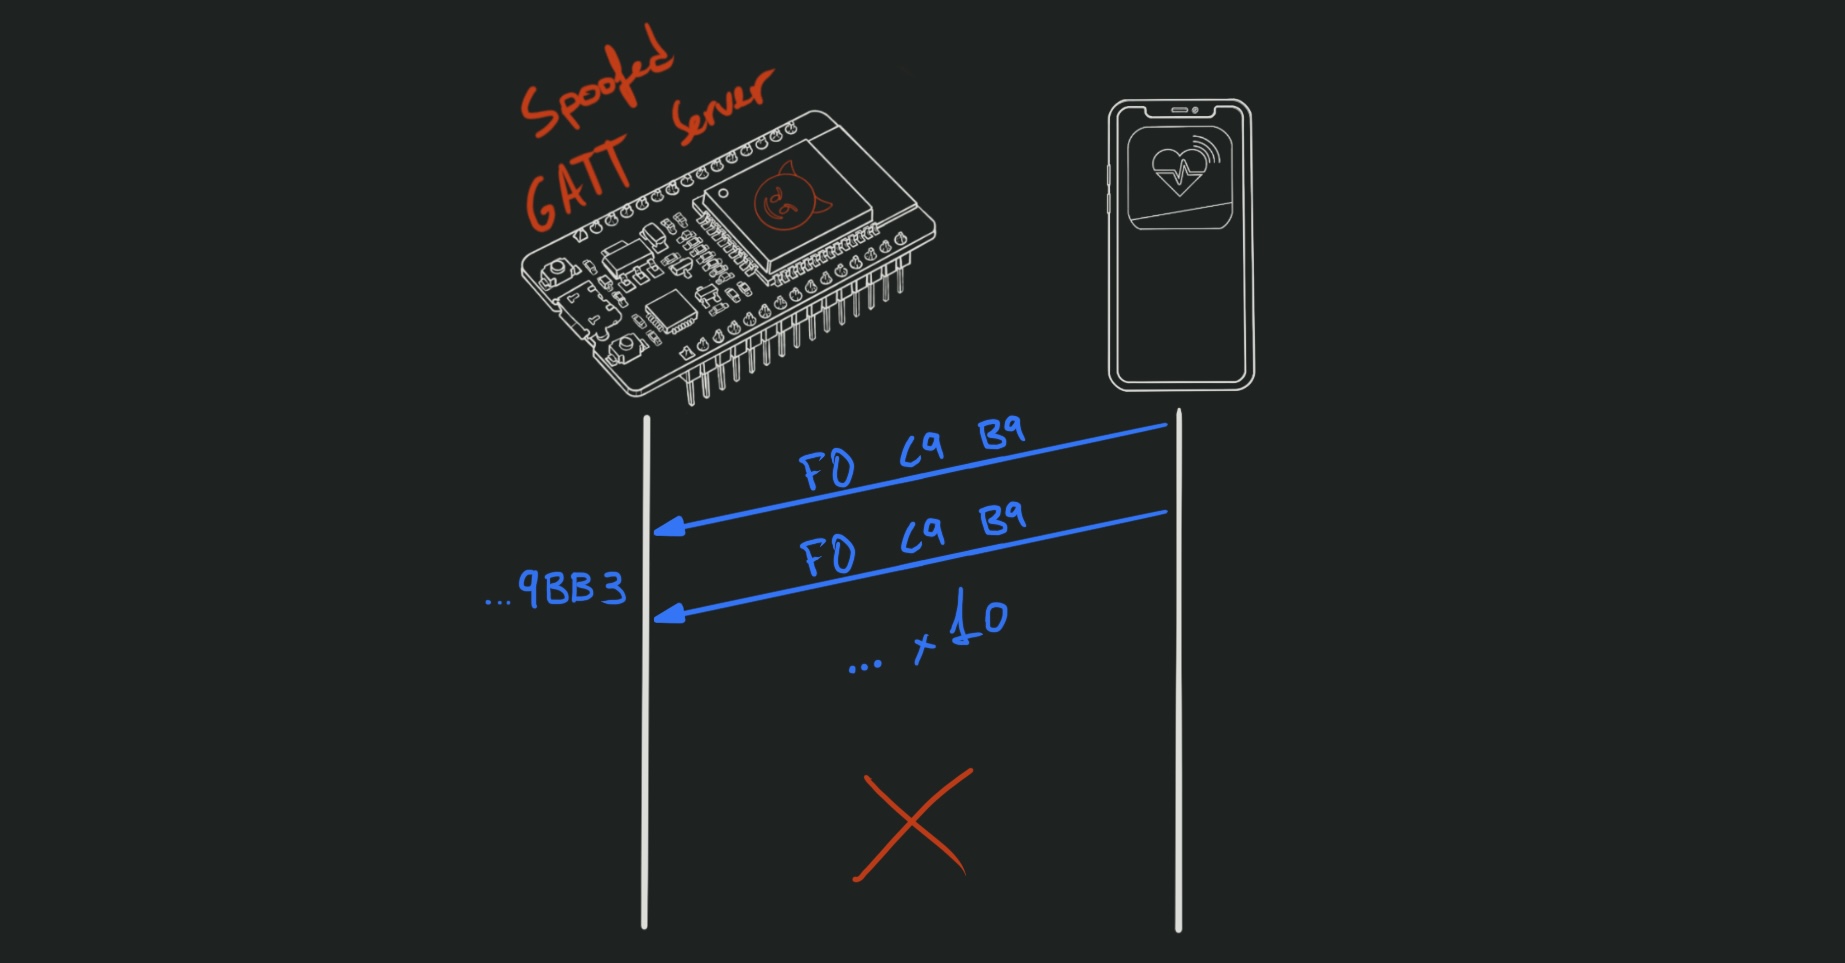 Spoofed
GATT Server
F0 C9 B9
F0 C9 B9
...9BB3
... x10